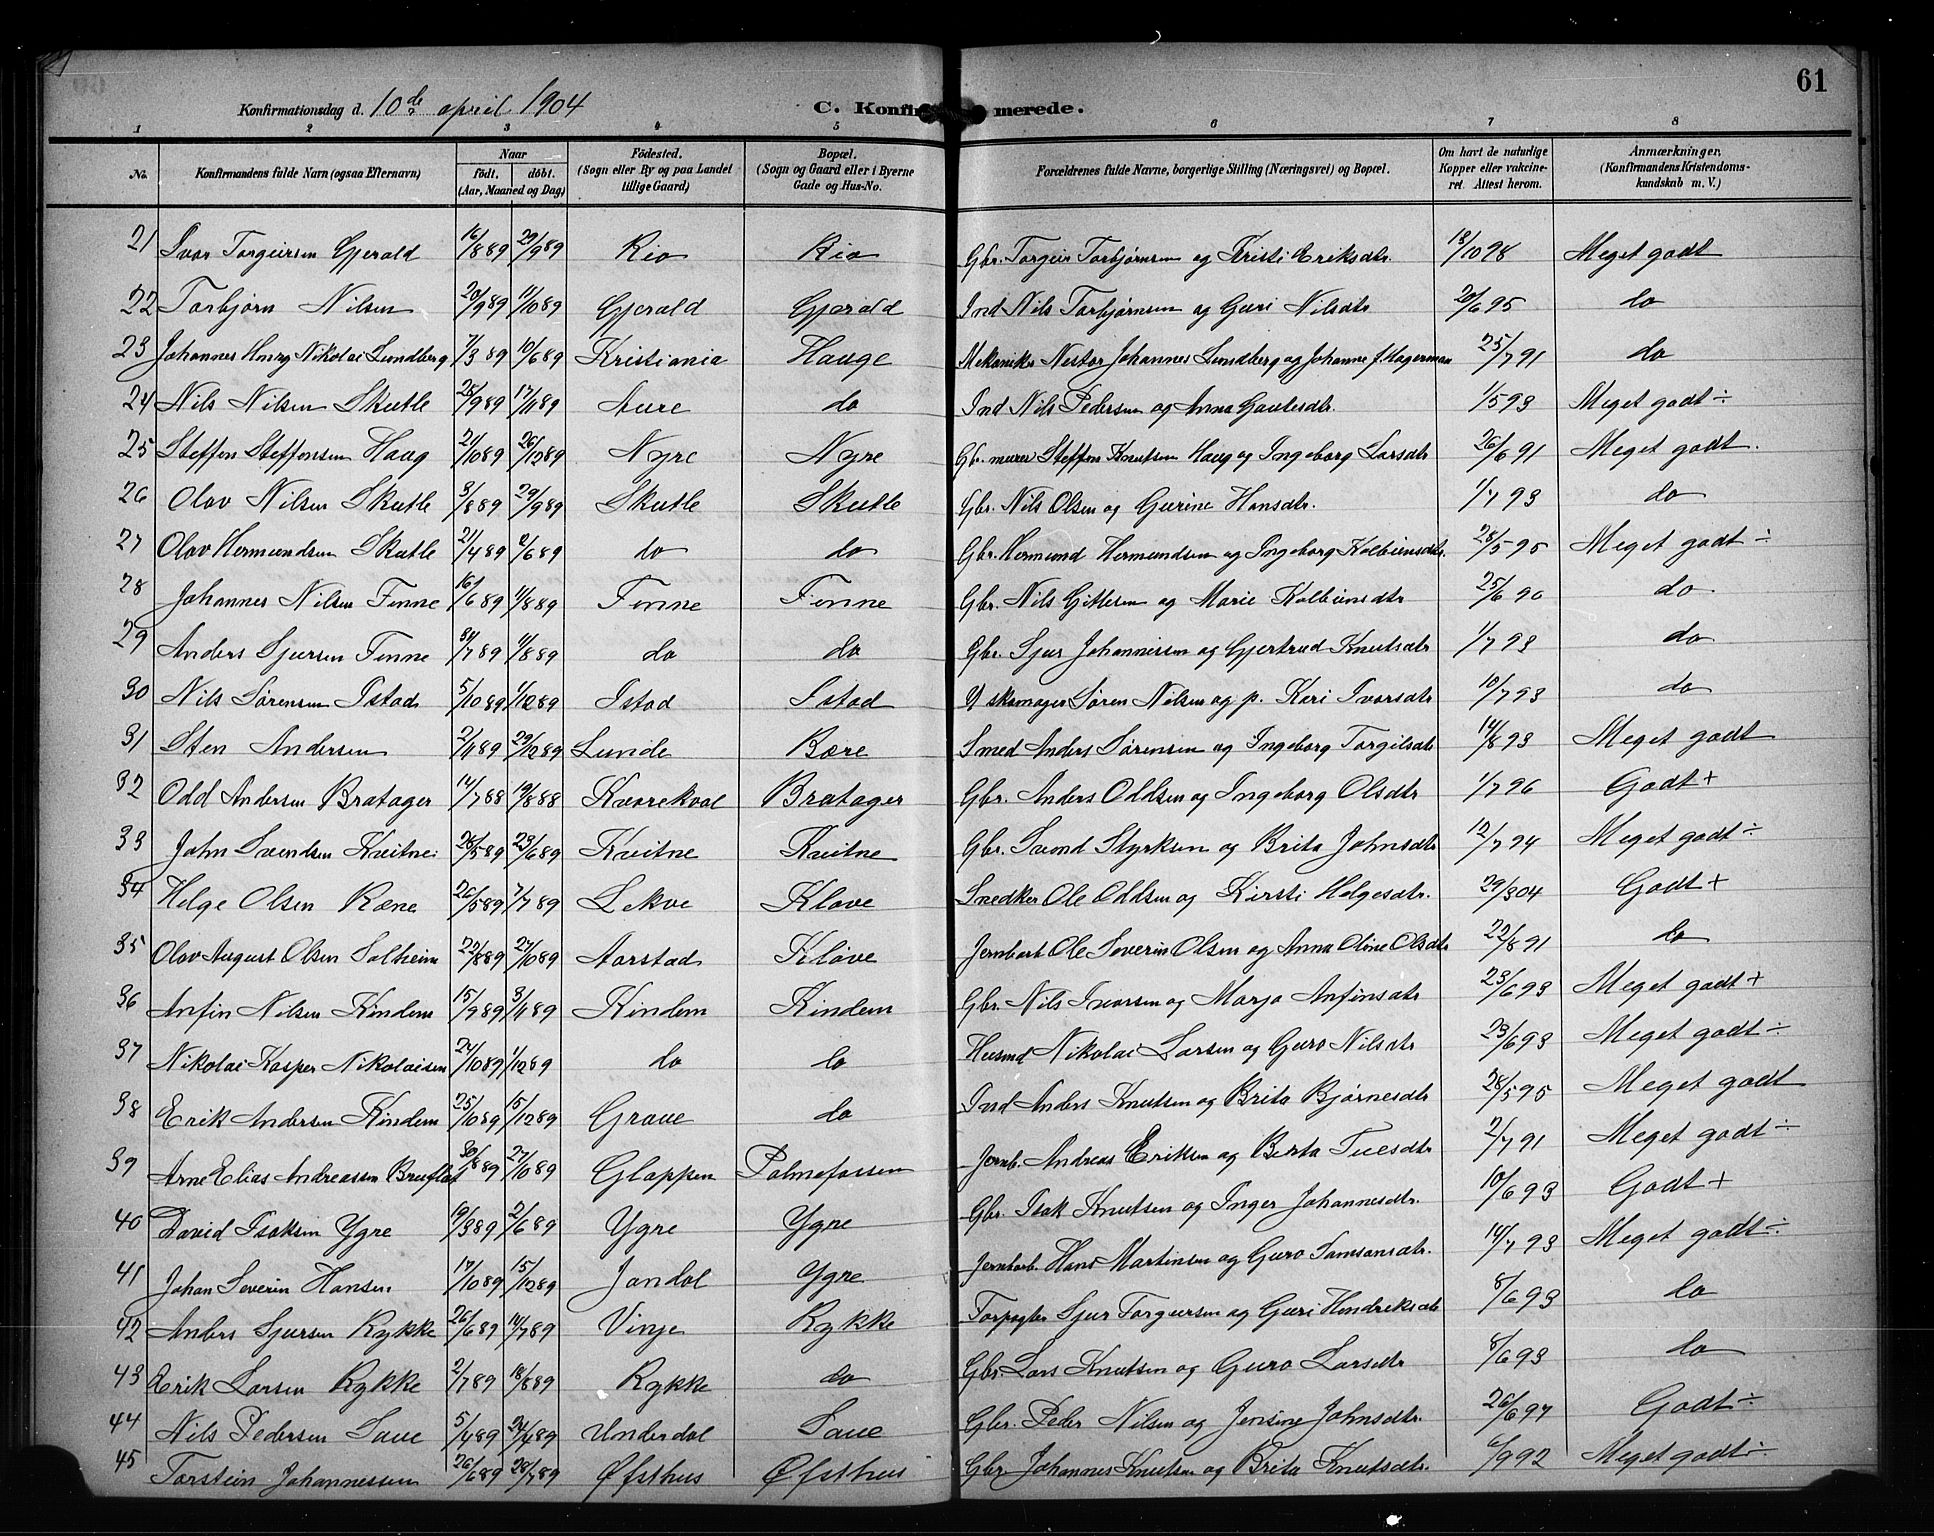 61
Konfirmationsdag d. 10de april 1904 C. Konfirmerede.
1 2 3 4 5 6 7 8
No. Konfirmandens fulde Navn (ogsaa Efternavn) Naar født. døbt. (Aar, Maaned og Dag) Fødested. (Sogn eller By og paa Landet tillige Gaard) Bopæl. (Sogn og Gaard eller i Byerne Gade og Hus-No. Forældrenes fulde Navne, borgerlige Stilling (Næringsvei) og Bopæl. Om havt de naturlige Kopper eller vakcineret. Attest herom. Anmærkninger. (Konfirmandens Kristendomskundskab m. V.)
21 Ivar Torgeirsen Gjerald 16/8 89 29/9 89 Rio Rio Gbr. Torgeir Torbjørnsen og Kristi Eriksdtr. 18/10 98 Meget godt
22 Torbjørn Nilsen 20/9 89 11/10 89 Gjerald Gjerald Ind Nils Torbjørnsen og Guri Nilsdtr 20/6 95 do
23 Johannes Henry Nikolai Lundberg 7/3 89 10/6 89 Kristiania Hauge Mekaniker Nestor Johannes Lundberg og Johanne f. Hagerman 25/7 91 do
24 Nils Nilsen Skutle 25/9 89 17/11 89 Aure do Ind Nils Pedersen og Anna Gautesdtr. 1/5 93 Meget godt ÷
25 Steffen Steffensen Haug 21/10 89 26/12 89 Nyre Nyre Gbr. murer Steffen Knutsen Haug og Ingeborg Larsdtr 26/6 91 Meget godt.
26 Olav Nilsen Skutle 3/8 89 29/9 89 Skutle Skutle Gbr. Nils Olsen og Gurine Hansdtr. 1/7 93 do
27 Olav Hermundsen Skutle 21/4 89 2/6 89 do do Gbr. Hermund Hermundsen og Ingeborg Kolbeinsdtr. 28/5 95 Meget godt ÷
28 Johannes Nilsen Finne 16/6 89 1/8 89 Finne Finne Gbr. Nils Gitlesen og Marie Kolbeinsdtr 25/6 90 do
29 Anders Sjursen Finne 31/7 89 11/8 89 do do Gbr. Sjur Johannessen og Gjertrud Knutsdtr 1/7 93 do
30 Nils Sørensen Istad 5/10 89 1/12 89 Istad Istad U skomager Søren Nilsen og p. Kari Ivarsdtr 10/7 93 do
31 Sten Andersen 2/11 89 29/12 89 Lunde Bære Smed Anders Sørensen og Ingeborg Torgilsdtr 14/8 93 Meget godt
32 Odd Andersen Bratager 14/7 88 19/8 88 Kvarekval Bratager Gbr. Anders Oddsen og Ingeborg Olsdtr 1/7 96 Godt +
33 John Svendsen Kvitne 28/5 89 23/6 89 Kvitne Kvitne Gbr. Svend Styrksen og Brita Johnsdtr 12/7 94 Meget godt ÷
34 Helge Olsen Ræne 26/5 89 7/7 89 Lekve Kløve Snedker Ole Oddsen og Kirsti Helgesdtr. 29/3 04 Godt +
35 Olav August Olsen Solheim 22/8 89 27/10 89 Aarstad Kløve Jernbart Ole Severin Olsen og Anna Oline Olsdtr 22/8 91 do
36 Anfin Nilsen Kindem 15/9 89 3/11 89 Kindem Kindem Gbr. Nils Ivarsen og Marja Anfinsdtr 23/6 93 Meget godt +
37 Nikolai Kasper Nikolaisen 24/10 89 1/12 89 do do Husmd Nikolai Larsen og Guro Nilsdtr 23/6 93 Meget godt ÷
38 Erik Andersen Kindem 25/10 89 15/12 89 Graue do Ind Anders Knutsen og Brita Bjørnesdtr 28/5 95 Meget godt
39 Arne Elias Andreassen Bruflat 30/8 89 27/10 89 Glappen Palmefossen Jernb. Andreas Eriksen og Berta Tuesdtr 2/7 91 Meget godt ÷
40 David Isaksen Ygre 19/3 89 2/6 89 Ygre Ygre Gbr. Isak Knutsen og Inger Johannesdtr. 10/6 93 Godt +
41 Johan Severin Hansen 17/10 89 15/12 89 Jondal Ygre Jernbarb. Hans Martinsen og Guro Samsonsdtr. 14/7 93 Meget godt ÷
42 Anders Sjursen Rykke 26/6 89 14/7 89 Vinje Rykke Forpagter Sjur Torgeirsen og Guri Hendriksdtr 8/6 93 do
43 Erik Larsen Rykke 2/7 89 18/8 89 Rykke do Gbr. Lars Knutsen og Guro Larsdtr 8/6 93 do
44 Nils Pedersen Saue 5/4 89 24/4 89 Underdal Saue Gbr. Peder Nilsen og Jensine Johnsdtr. 26/6 97 Godt ÷
45 Torstein Johannessen 26/6 89 28/7 89 Øfsthus Øfsthus Gbr. Johannes Knutsen og Brita Knutsdtr. 6/9 92 Meget godt ÷